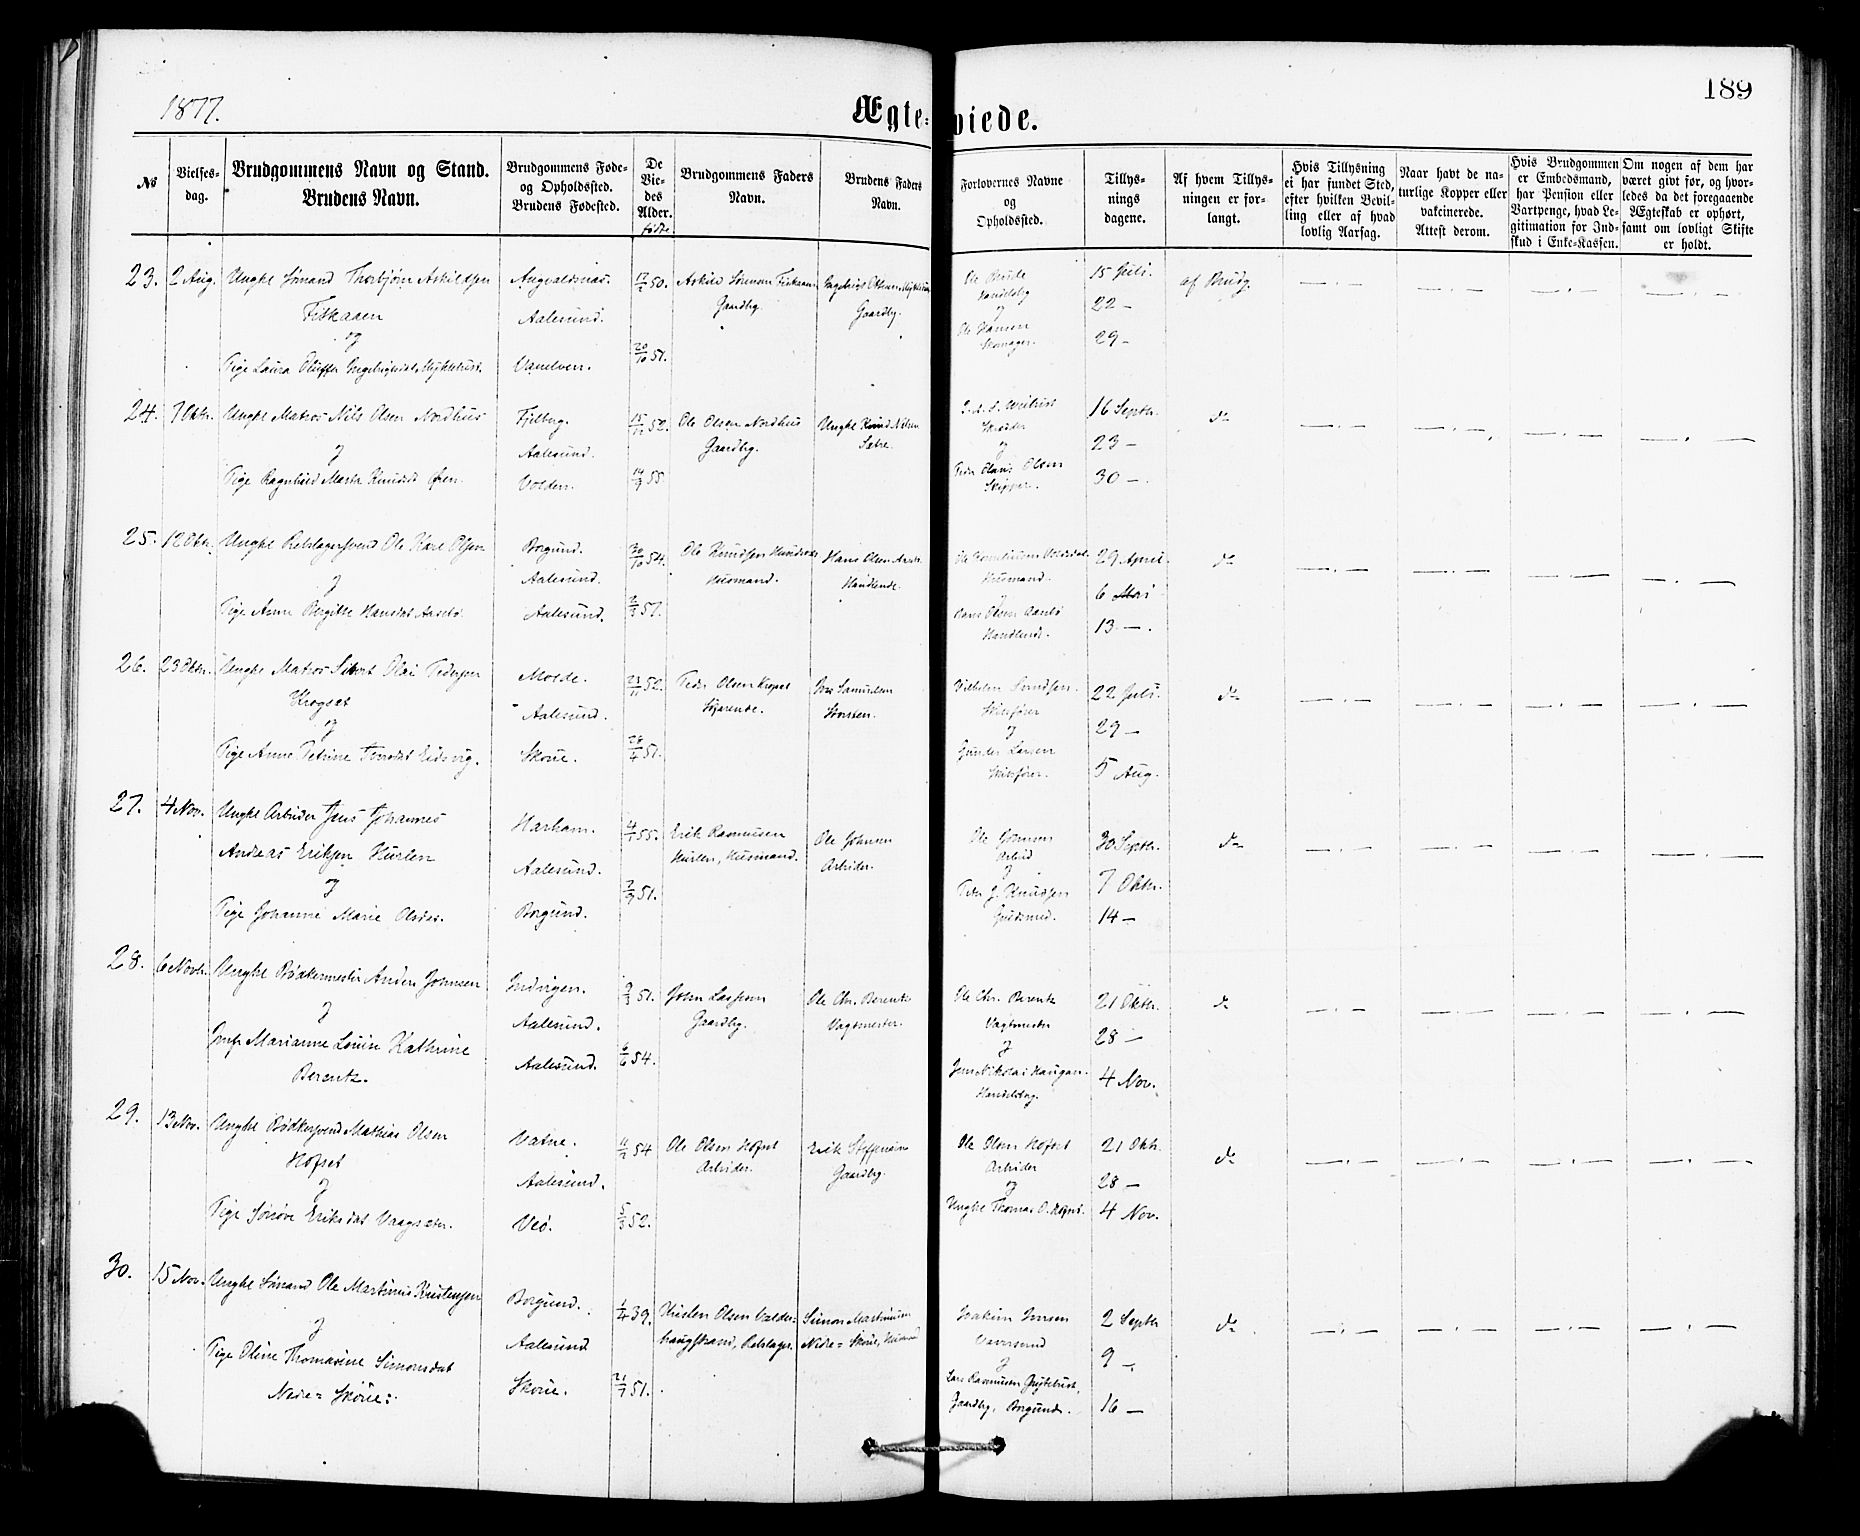 1877.
Ægteviede.
189
No
Vielsesdag.
Brudgommens Navn og Stand.
Brudens Navn.
Brudgommens Føde-
og Opholdssted.
Brudens Fødested.
De
Vie-
des
Alder.
fødte
Brudgommens Faders
Navn.
Brudens Faders
Navn.
Forlovernes Navne
og
Opholdssted.
Tillys-
nings
dagene.
Af hvem Tillys-
ningen er for-
langt.
Hvis Tillysning
ei har fundet Sted,
efter hvilken Bevil-
ling eller af hvad
lovlig Aarsag.
Naar havt de na-
turlige Kopper eller
vakcinerede.
Attest derom.
Hvis Brudgommen
er Embedsmand,
har Pension eller
Vartpenge, hvad Le-
gitimation for Ind-
skud i Enke-Kassen.
Om nogen af dem har
været givt før, og hvor-
ledes da det foregaaende
Ægteskab er ophørt,
samt om lovligt Skifte
er holdt.
23. 2 Aug. Ungkl Sømand Thorbjørn Askildsen
Fiskaaen
og
Pige Laura Oluffa Ingebrigtsdat Myklebust.
Augvaldsnæs.
Aalesund.
Vanelven.
17/2 50.
20/10 51.
Askild Sørensen Fiskaaen
Gaardbr.
Ingebrigt Olsen Myklebust
Gaardbr.
Ole Brule
Handelsbg
og
Ole Hansen
Skomager.
15 Juli.
22 —
29 —
af Brudg.
24. 7 Oktr. Ungkl Matros Nils Olsen Nordhus
og
Pige Ragnhild Marta Knudsd Øren.
Fjelberg.
Aalesund.
Volden.
52.
55
Ole Olsen Nordhus
Gaardbr.
Ungkl Knud Nilsen
Sætre.
Skræder
og
Peder Olaus Olsen
Skipper.
16 Septr.
23 —
30 —
do
25. 12 Oktr. Ungkl Rebslagersvend Ole Karl Olsen
og
Pige Anne Bergitte Hansdat Aasebø.
Borgund.
Aalesund.
Aalesund.
30/10 54.
2/3 51.
Ole Knudsen
Husmand.
Hans Olsen
Handlende.
Husmand.
og
Hans Olsen Aasebø
Handlende.
29 April.
6 Mai
13 —.
do
26. 23 Oktr. Ungkl Matros Sivert Olai Pedersen
Krogsæt
og
Pige Anne Petrine Jensdat Eidsvig.
Molde.
Aalesund.
Skoue.
52.
28/4 51.
Peder Olsen Krogsæt
Søfarende.
Jens Samuelsen
Vilhelm Knudsen
Skibsfører
og
Gunder Larsen
Skibsfører.
22 Juli.
29 —
5 Aug.
do
27. 4 Nov. Ungkl Arbeider Jens Johannes
Andreas Eriksen Hurlen
og
Pige Johanne Marie Olsdat.
Harham.
Aalesund.
Borgund.
55.
2/9 51.
Erik Rasmussen
Hurlen, Husmand.
Ole Johnsen
Arbeider.
Ole Johnsen
Arbeid
og
Peder J. Knudsen
Guldsmed.
30 Septr.
7 Oktr.
14 —
do
28. 6 Novbr. Ungkl Bødkermester Anders Johnsen
og
Jmfr Marianne Louise Kathrine
Berentz.
Indvigen.
Aalesund.
Aalesund.
9/3 51.
6/6 54.
John Lassesen
Gaardbr.
Ole Chr. Berentz
Vagtmester.
Ole Chr. Berentz
Vagtmester
og
Jens Nikolai Haugan.
Handelsbg.
21 Oktr.
28 —
4 Nov.
do
29. 13 Nov. Ungkl Bødkersvend Mathias Olsen
Hofset
og
Pige Sønnøve Eriksdat Vaagsæter.
Vatne.
Aalesund.
Veø.
54
5/3 52.
Ole Olsen Hofset
Arbeider.
Erik Steffensen
Gaardbr.
Ole Olsen Hofset
Arbeider
og
Ungkl Thomas O. Hofset.
21 Oktr.
28 —
4 Nov.
do
30. 15 Nov. Ungkl Sømand Ole Martinus Kristensen
og
Pige Oline Thomasine Simonsdat
Nedre=Skoue:
Borgund.
Aalesund
Skoue.
1/4 39.
21/7 51.
Kristen Olsen Valder=
haugstrand, Rebslager.
Simon Martinusen
Nedre=Skoue, Husmand
Joakim Jensen
og
Lars Rasmussen Gjøtebust,
Gaardbr, Borgund.
2 Septr
9 —
16 —
do